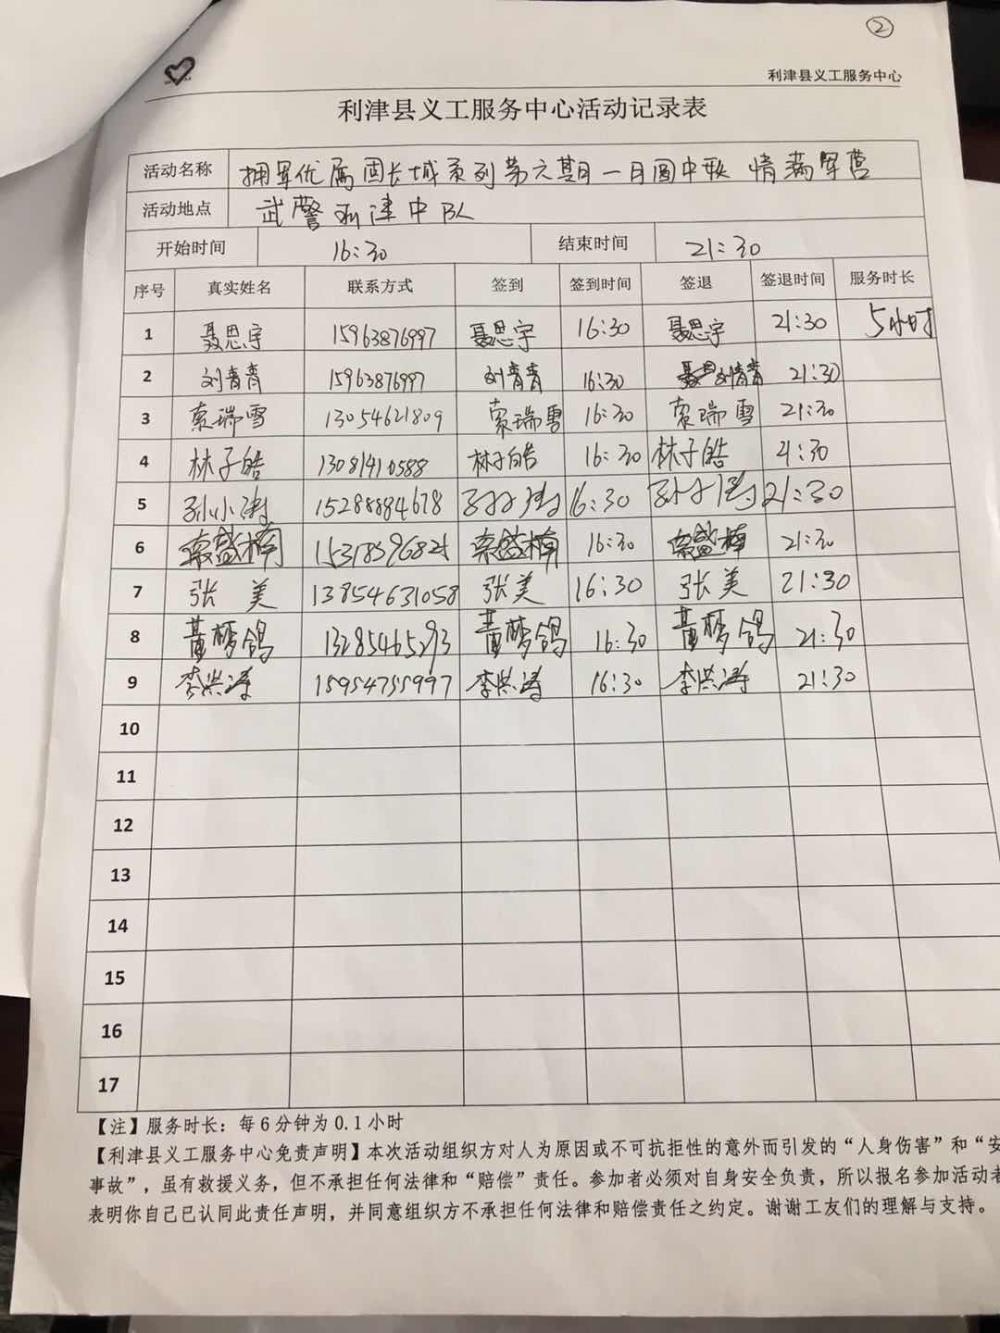 ②
利津县义工服务中心
利津县义工服务中心活动记录表
活动名称 拥军优属 固长城系列第六期月一月圆中秋 情满军营
活动地点 武警利津中队
开始时间 16:30 结束时间 21:30
序号 真实姓名 联系方式 签到 签到时间 签退 签退时间 服务时长
1 聂思宇 15963876997 聂思宇 16:30 聂思宇 21:30 5小时
2 刘青青 15963876997 刘青青 16:30 刘青青 21:30
3 索瑞雪 13054621809 索瑞雪 16:30 索瑞雪 21:30
4 林子皓 13081410588 林子皓 16:30 林子皓 21:30
5 孙小涛 15288884678 孙小涛 16:30 孙小涛 21:30
6 索盛楠 索盛楠 16:30 索盛楠 21:30
7 张美 13854631058 张美 16:30 张美 21:30
8 董梦鸽 13285465293 董梦鸽 16:30 董梦鸽 21:30
9 李洪涛 15954755997 李洪涛 16:30 李洪涛 21:30
10
11
12
13
14
15
16
17
【注】服务时长：每6分钟为0.1小时
【利津县义工服务中心免责声明】本次活动组织方对人为原因或不可抗拒性的意外而引发的“人身伤害”和“安
事故”，虽有救援义务，但不承担任何法律和“赔偿”责任。参加者必须对自身安全负责，所以报名参加活动者
表明你自己已认同此责任声明，并同意组织方不承担任何法律和赔偿责任之约定。谢谢工友们的理解与支持。